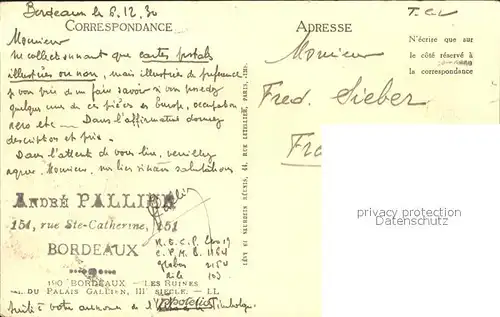 Bordeaux le 8.12.30
T.C.L
CORRESPONDANCE
ADRESSE
N'écrire que sur
le côté réservé à
la correspondance
Monsieur
ne collectionnant que cartes postales
illustrées ou non, mais illustrées de préférence
je vous prie de me faire savoir si vous possédez
quelques unes de ces pièces en Europe, occupation
aero etc — Dans l'affirmative donnez
description et prix.
Dans l'attente de vous lire, veuillez
agréer Monsieur, mes bien sincères salutations
ANDRÉ PALLIER
151, rue Ste-Catherine, 151
BORDEAUX
Monsieur
Fred. Sieber
LÉVY ET NEURDEIN RÉUNIS, 44, RUE LETELLIER, PARIS, IMP.
1154
2154
103
190 BORDEAUX — LES RUINES
DU PALAIS GALLIEN, IIIe SIÈCLE. — LL
suite à votre annonce de l'
oldthing
Copyright protected